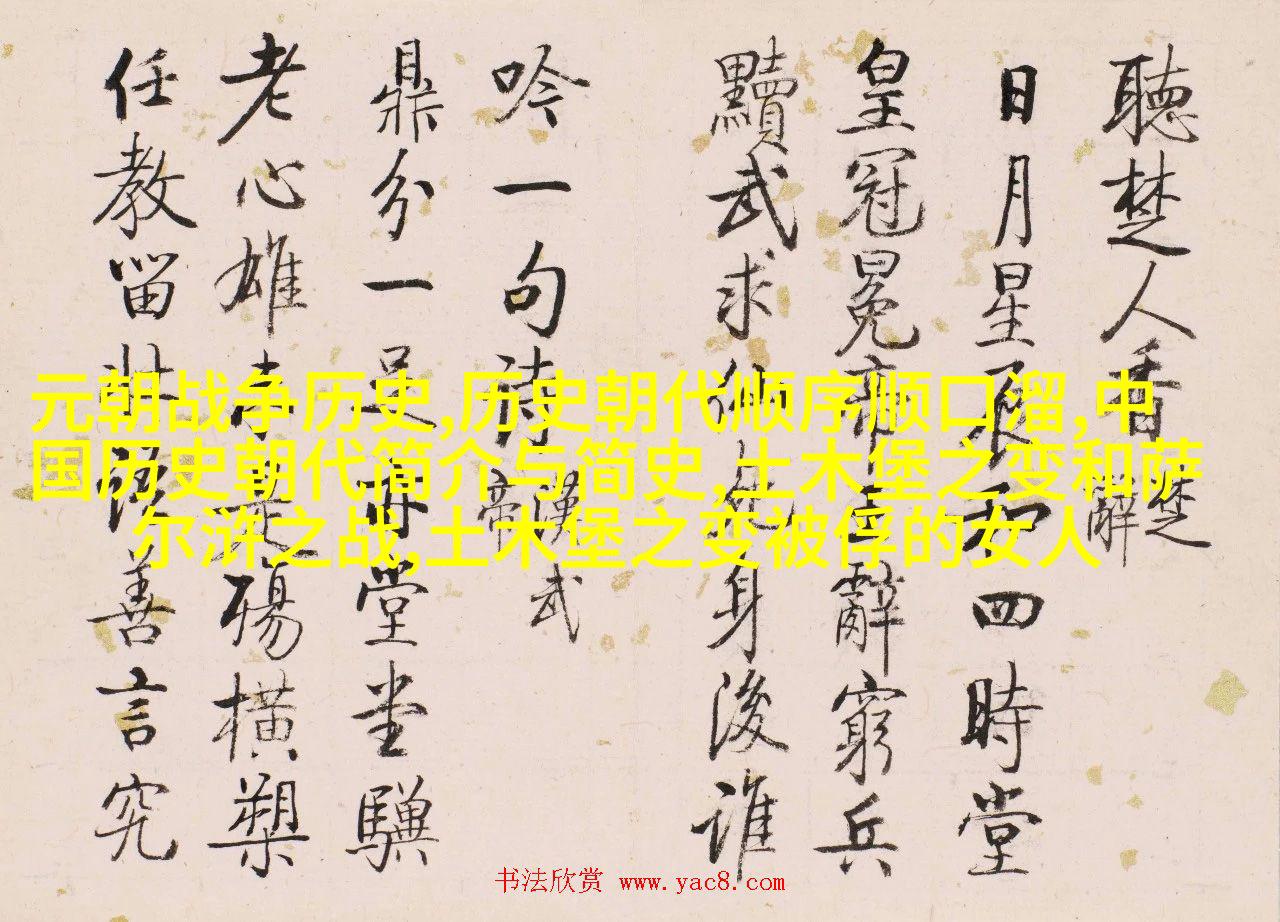 聽楚人香
楚
辭
日月星辰和四時堂
皇冠冕亦辭窮兵
黷武求仙身後誰
吟一句詩
漢武
帝
鼎分一足堂堂驥
老心雄殤橫槊
任教留善言究
元朝战争历史,历史朝代顺序顺口溜,中
国历史朝代简介与简史,土木堡之变和萨
尔浒之战,土木堡之变被俘的女人
书法欣赏 www.yac8.com